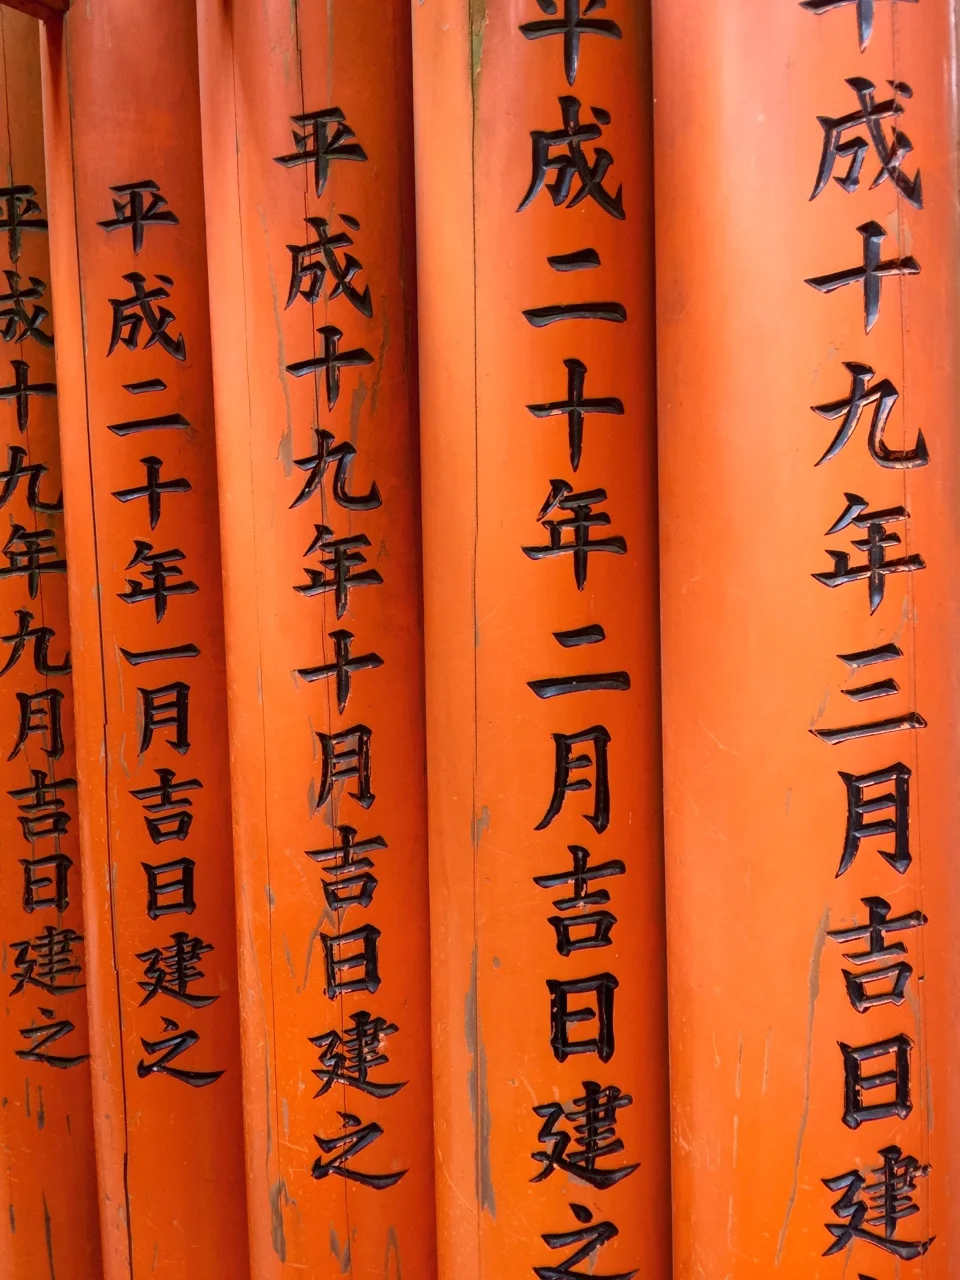 平成十九年三月吉日建
平成二十年二月吉日建之
平成十九年十月吉日建之
平成二十年一月吉日建之
平成十九年九月吉日建之